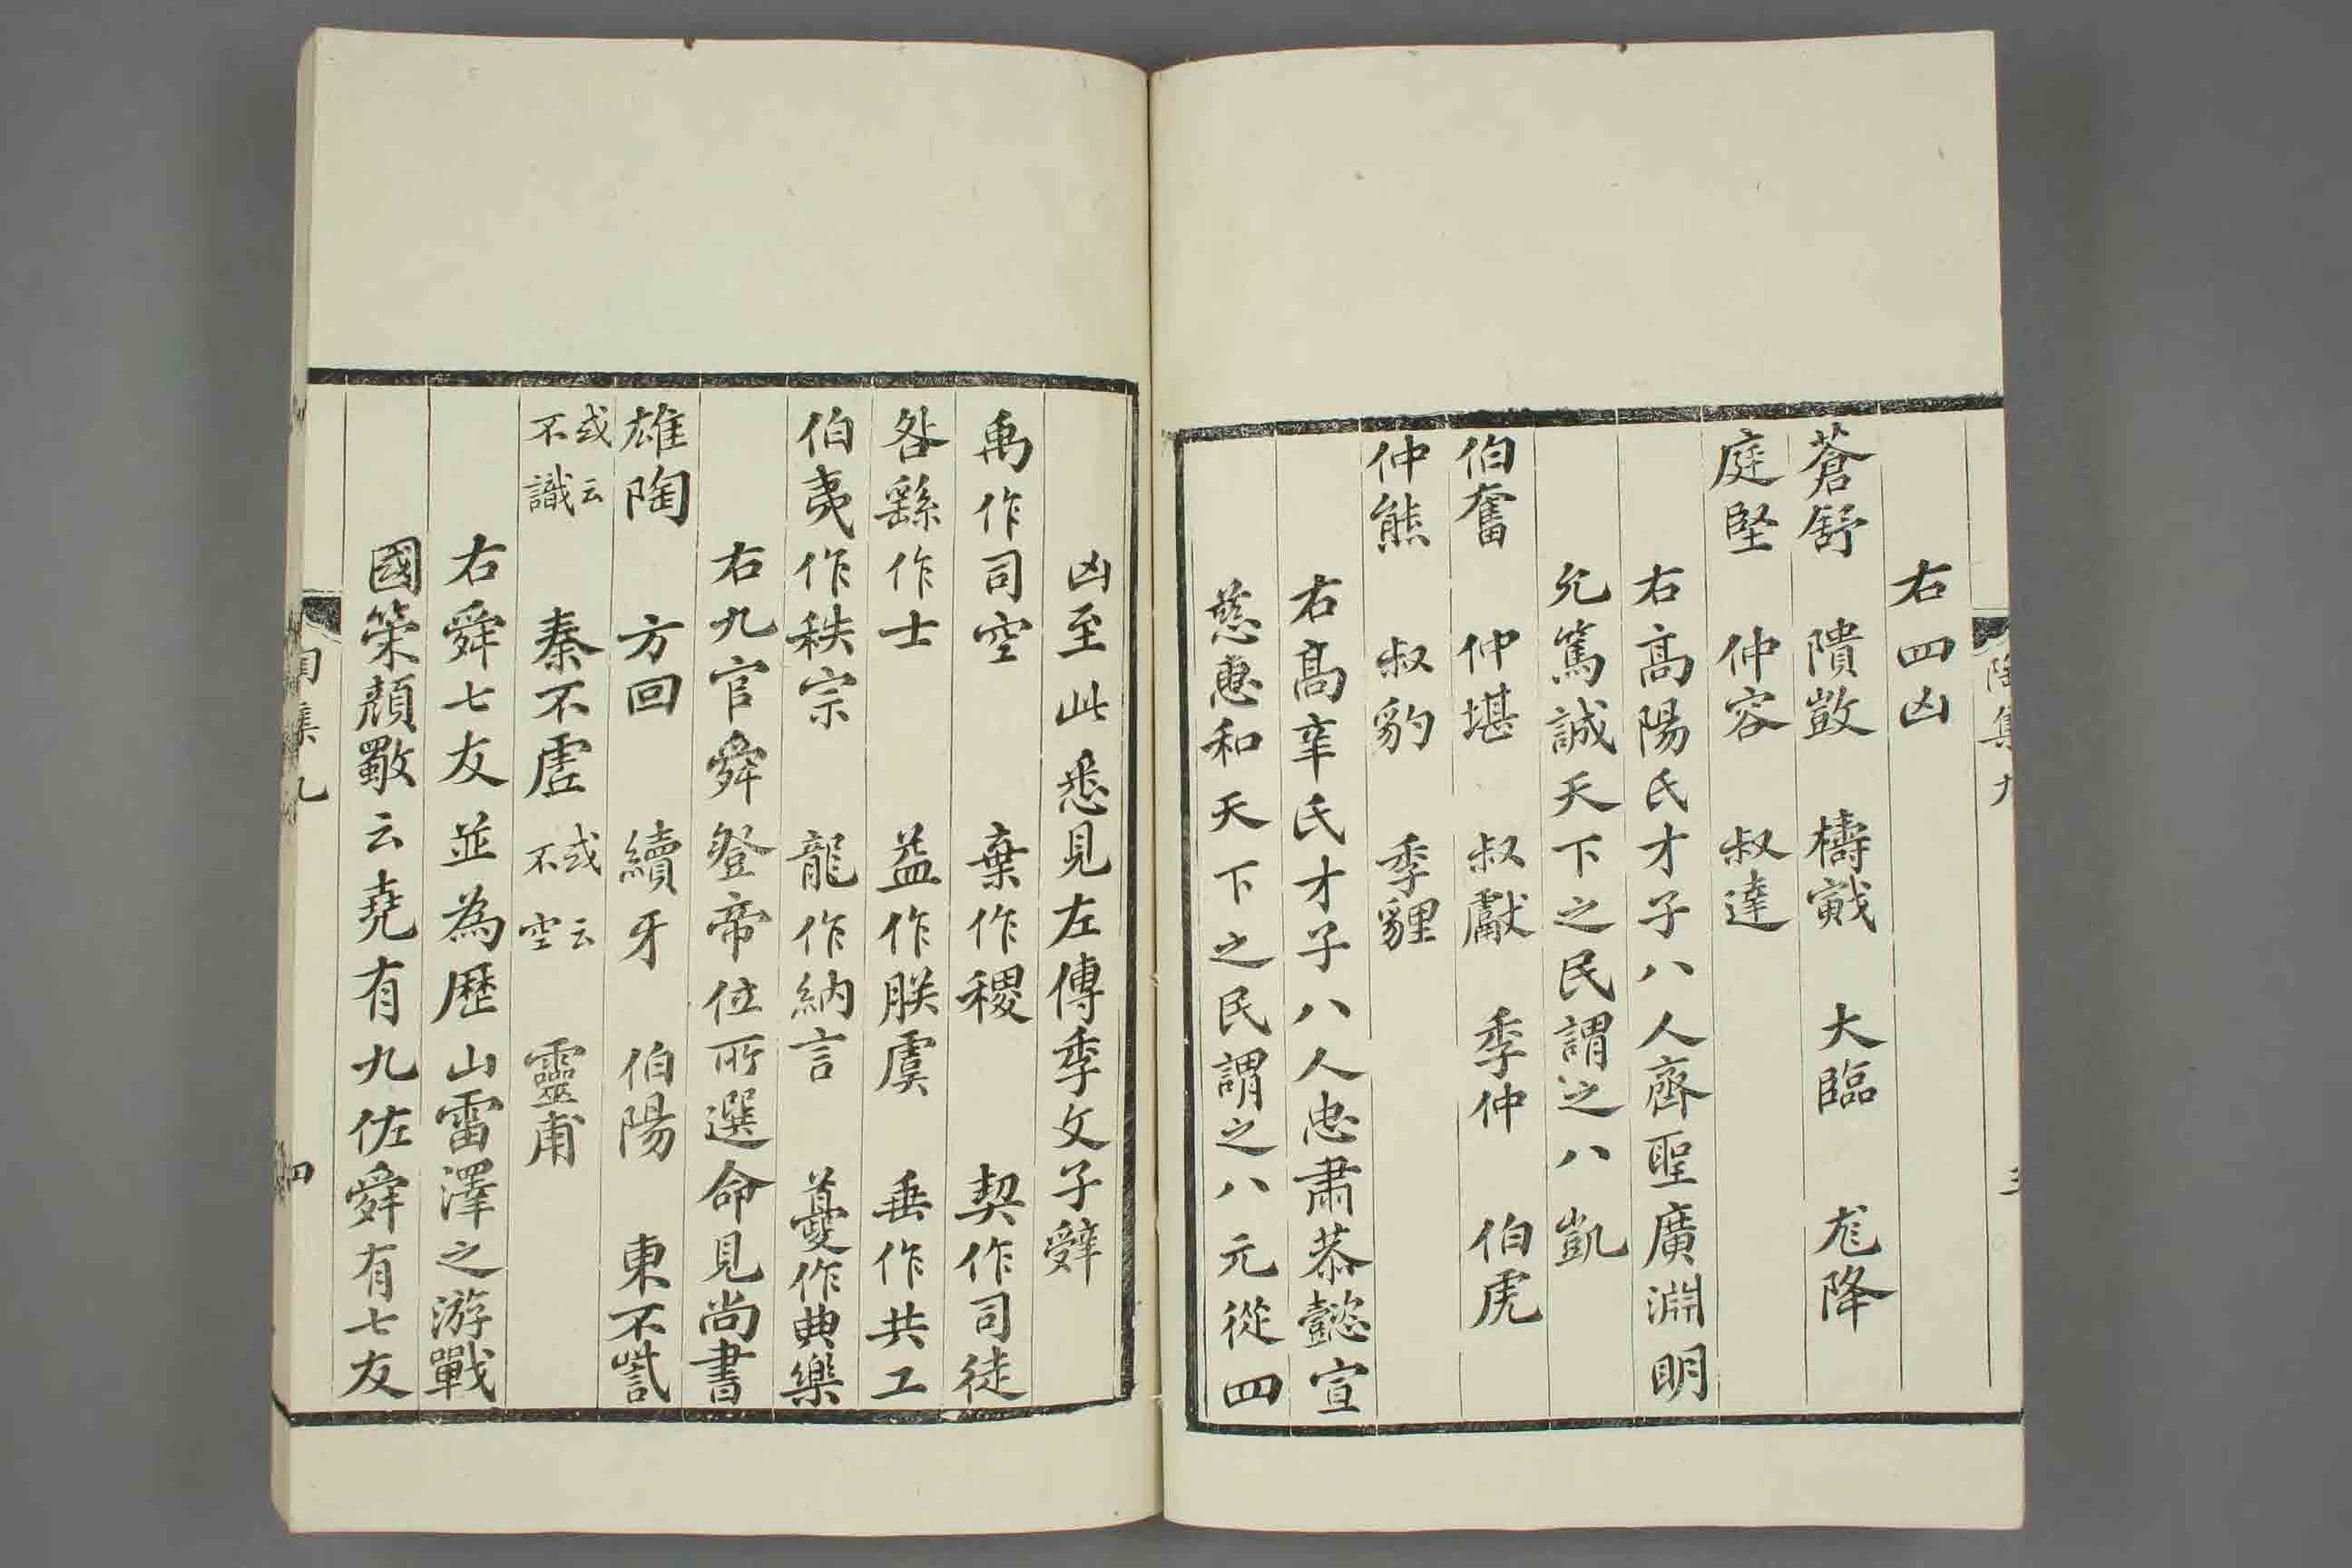 陶集九 三
右四凶
蒼舒 隤敳 檮戭 大臨 尨降
庭堅 仲容 叔達
右高陽氏才子八人齊聖廣淵明
允篤誠天下之民謂之八凱
伯奮 仲堪 叔獻 季仲 伯虎
仲熊 叔豹 季貍
右高辛氏才子八人忠肅恭懿宣
慈惠和天下之民謂之八元從四
凶至此悉見左傳季文子辭
禹作司空 棄作稷 契作司徒
咎繇作士 益作朕虞 垂作共工
伯夷作秩宗 龍作納言 夔作典樂
右九官舜登帝位所選命見尚書
雄陶 方回 續牙 伯陽 東不訾
或云不識 秦不虛 或云不空 靈甫
右舜七友並為歷山雷澤之游戰
國策顏歜云堯有九佐舜有七友
陶集九 四